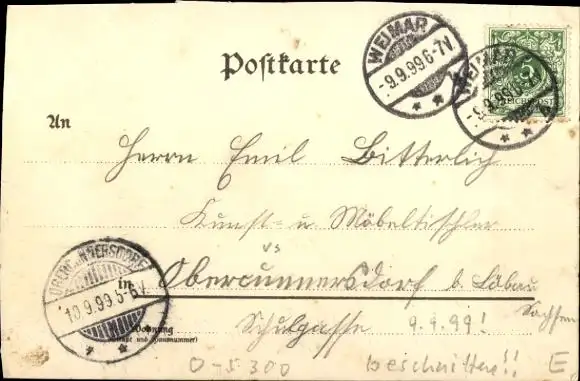 Postkarte
WEIMAR
-9.9.99.6-7V.
WEIMAR
-9.9.99.6
5
REICHSPOST
An
Herrn Emil Bitterlich
Kunst- u Möbeltischler
in Obercunnersdorf b. Löbau
Sachsen
OBERCUNNERSDORF
10.9.99.5-6V.
Wohnung
(Straße und Hausnummer)
Schulgasse 9.9.99!
0-5300 beschnitten!! E